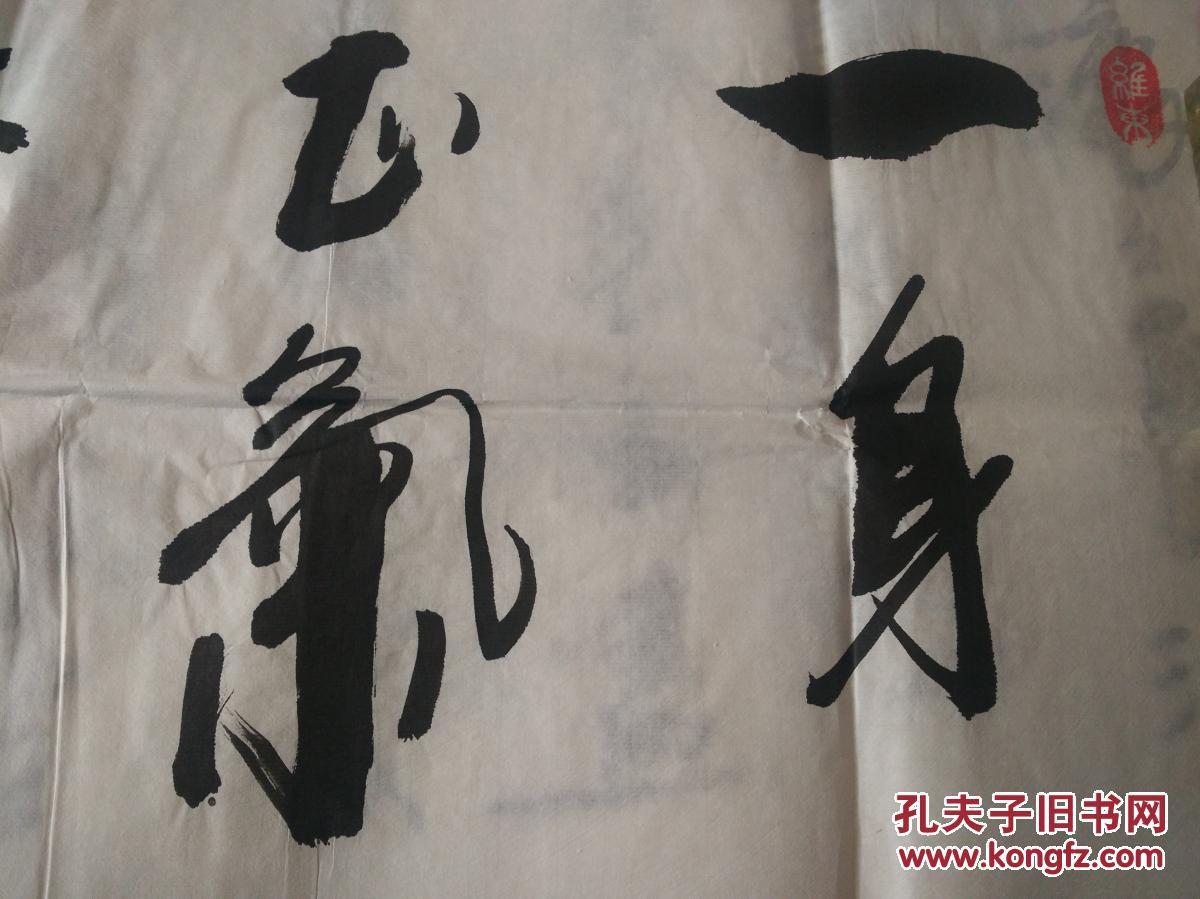 一身
正氣
維東
孔夫子旧书网
www.kongfz.com